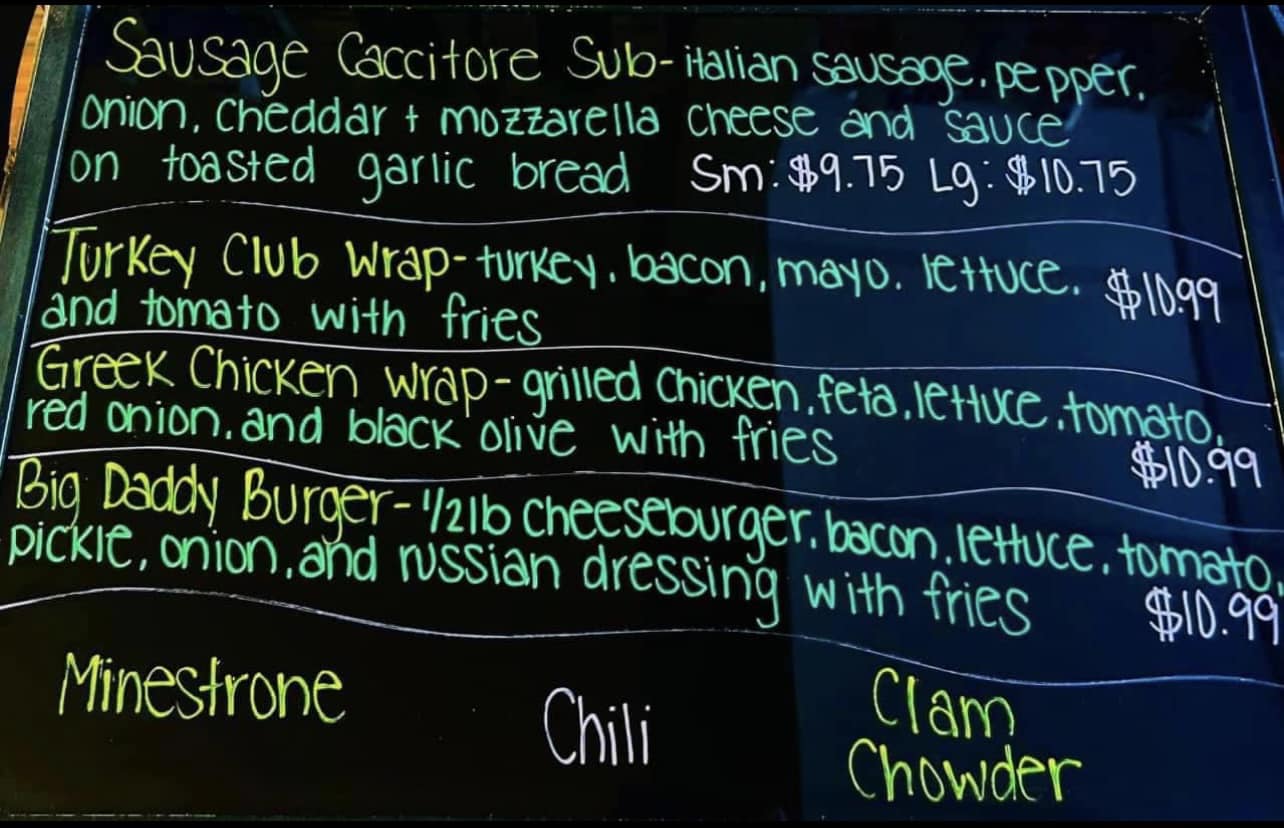 Sausage Caccitore Sub- italian sausage, pepper,
onion, cheddar + mozzarella cheese and sauce
on toasted garlic bread Sm: $9.75 Lg: $10.75
Turkey Club Wrap- turkey, bacon, mayo, lettuce, $10.99
and tomato with fries
Greek Chicken Wrap- grilled chicken, feta, lettuce, tomato,
red onion, and black olive with fries $10.99
Big Daddy Burger- 1/2lb cheeseburger, bacon, lettuce, tomato,
pickle, onion, and russian dressing with fries $10.99
Minestrone Chili Clam
Chowder